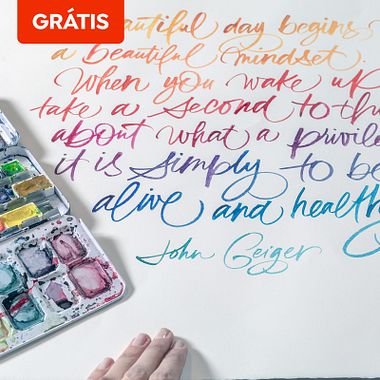 GRÁTIS
beautiful day begins
a beautiful mindset.
When you wake up
take a second to
about what a
it is simply to be
alive and healthy
John Geiger